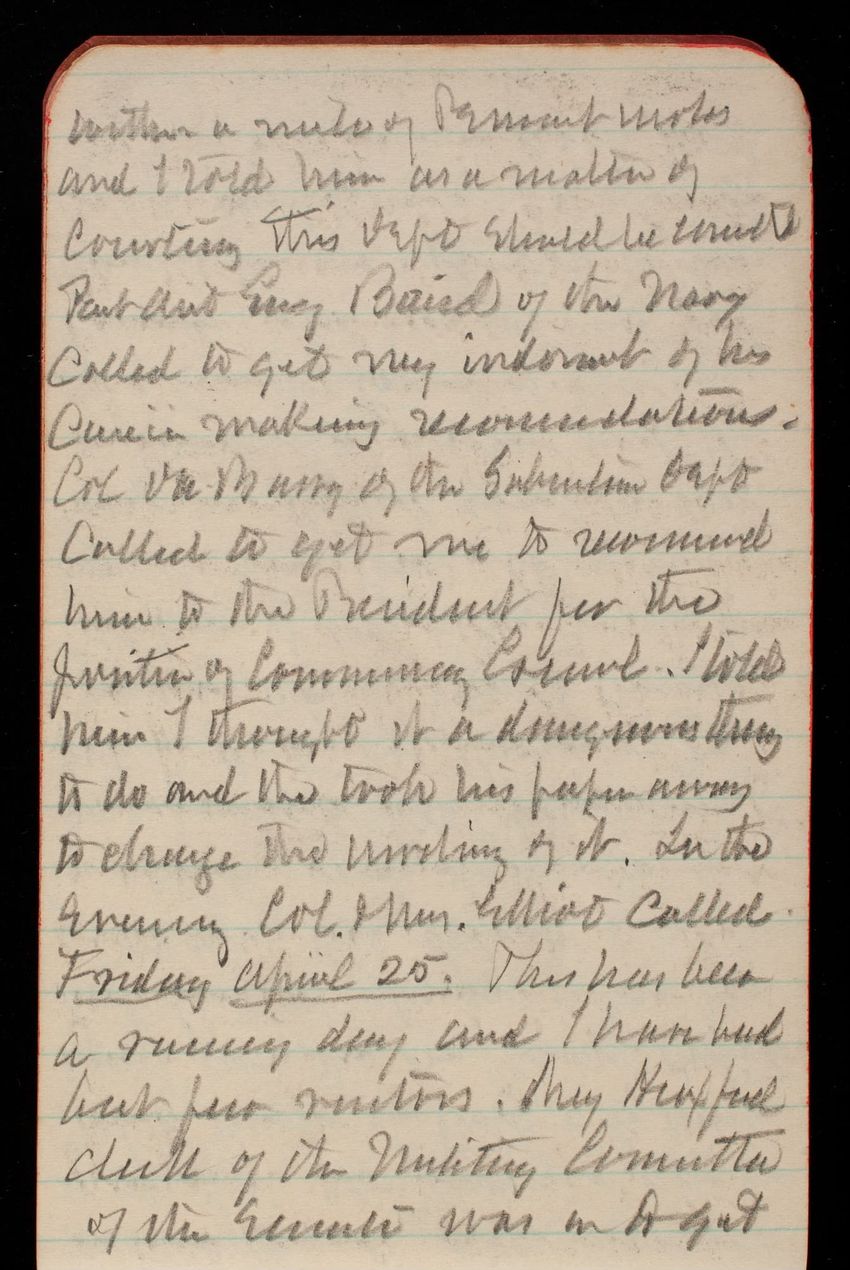 within a mile of
and I told him as a matter of
Courtesy this Dept should be consult'd
Past Asst Eng Baird of the Navy
Called to get my indorsmt of his
Course in making recomendations.
Col of the Subsistence Dept
Called to get me to recommend
him to the President for the
position of Commissary General. I told
him I thought it a dangerous thing
to do and the took his paper away
to change the wording of it. In the
Evening Col. & Mrs. Elliot Called.
Friday April 25. This has been
a rainy day and I have had
but few visitors. Maj
clerk of the Military Committee
of the Senate was in to get